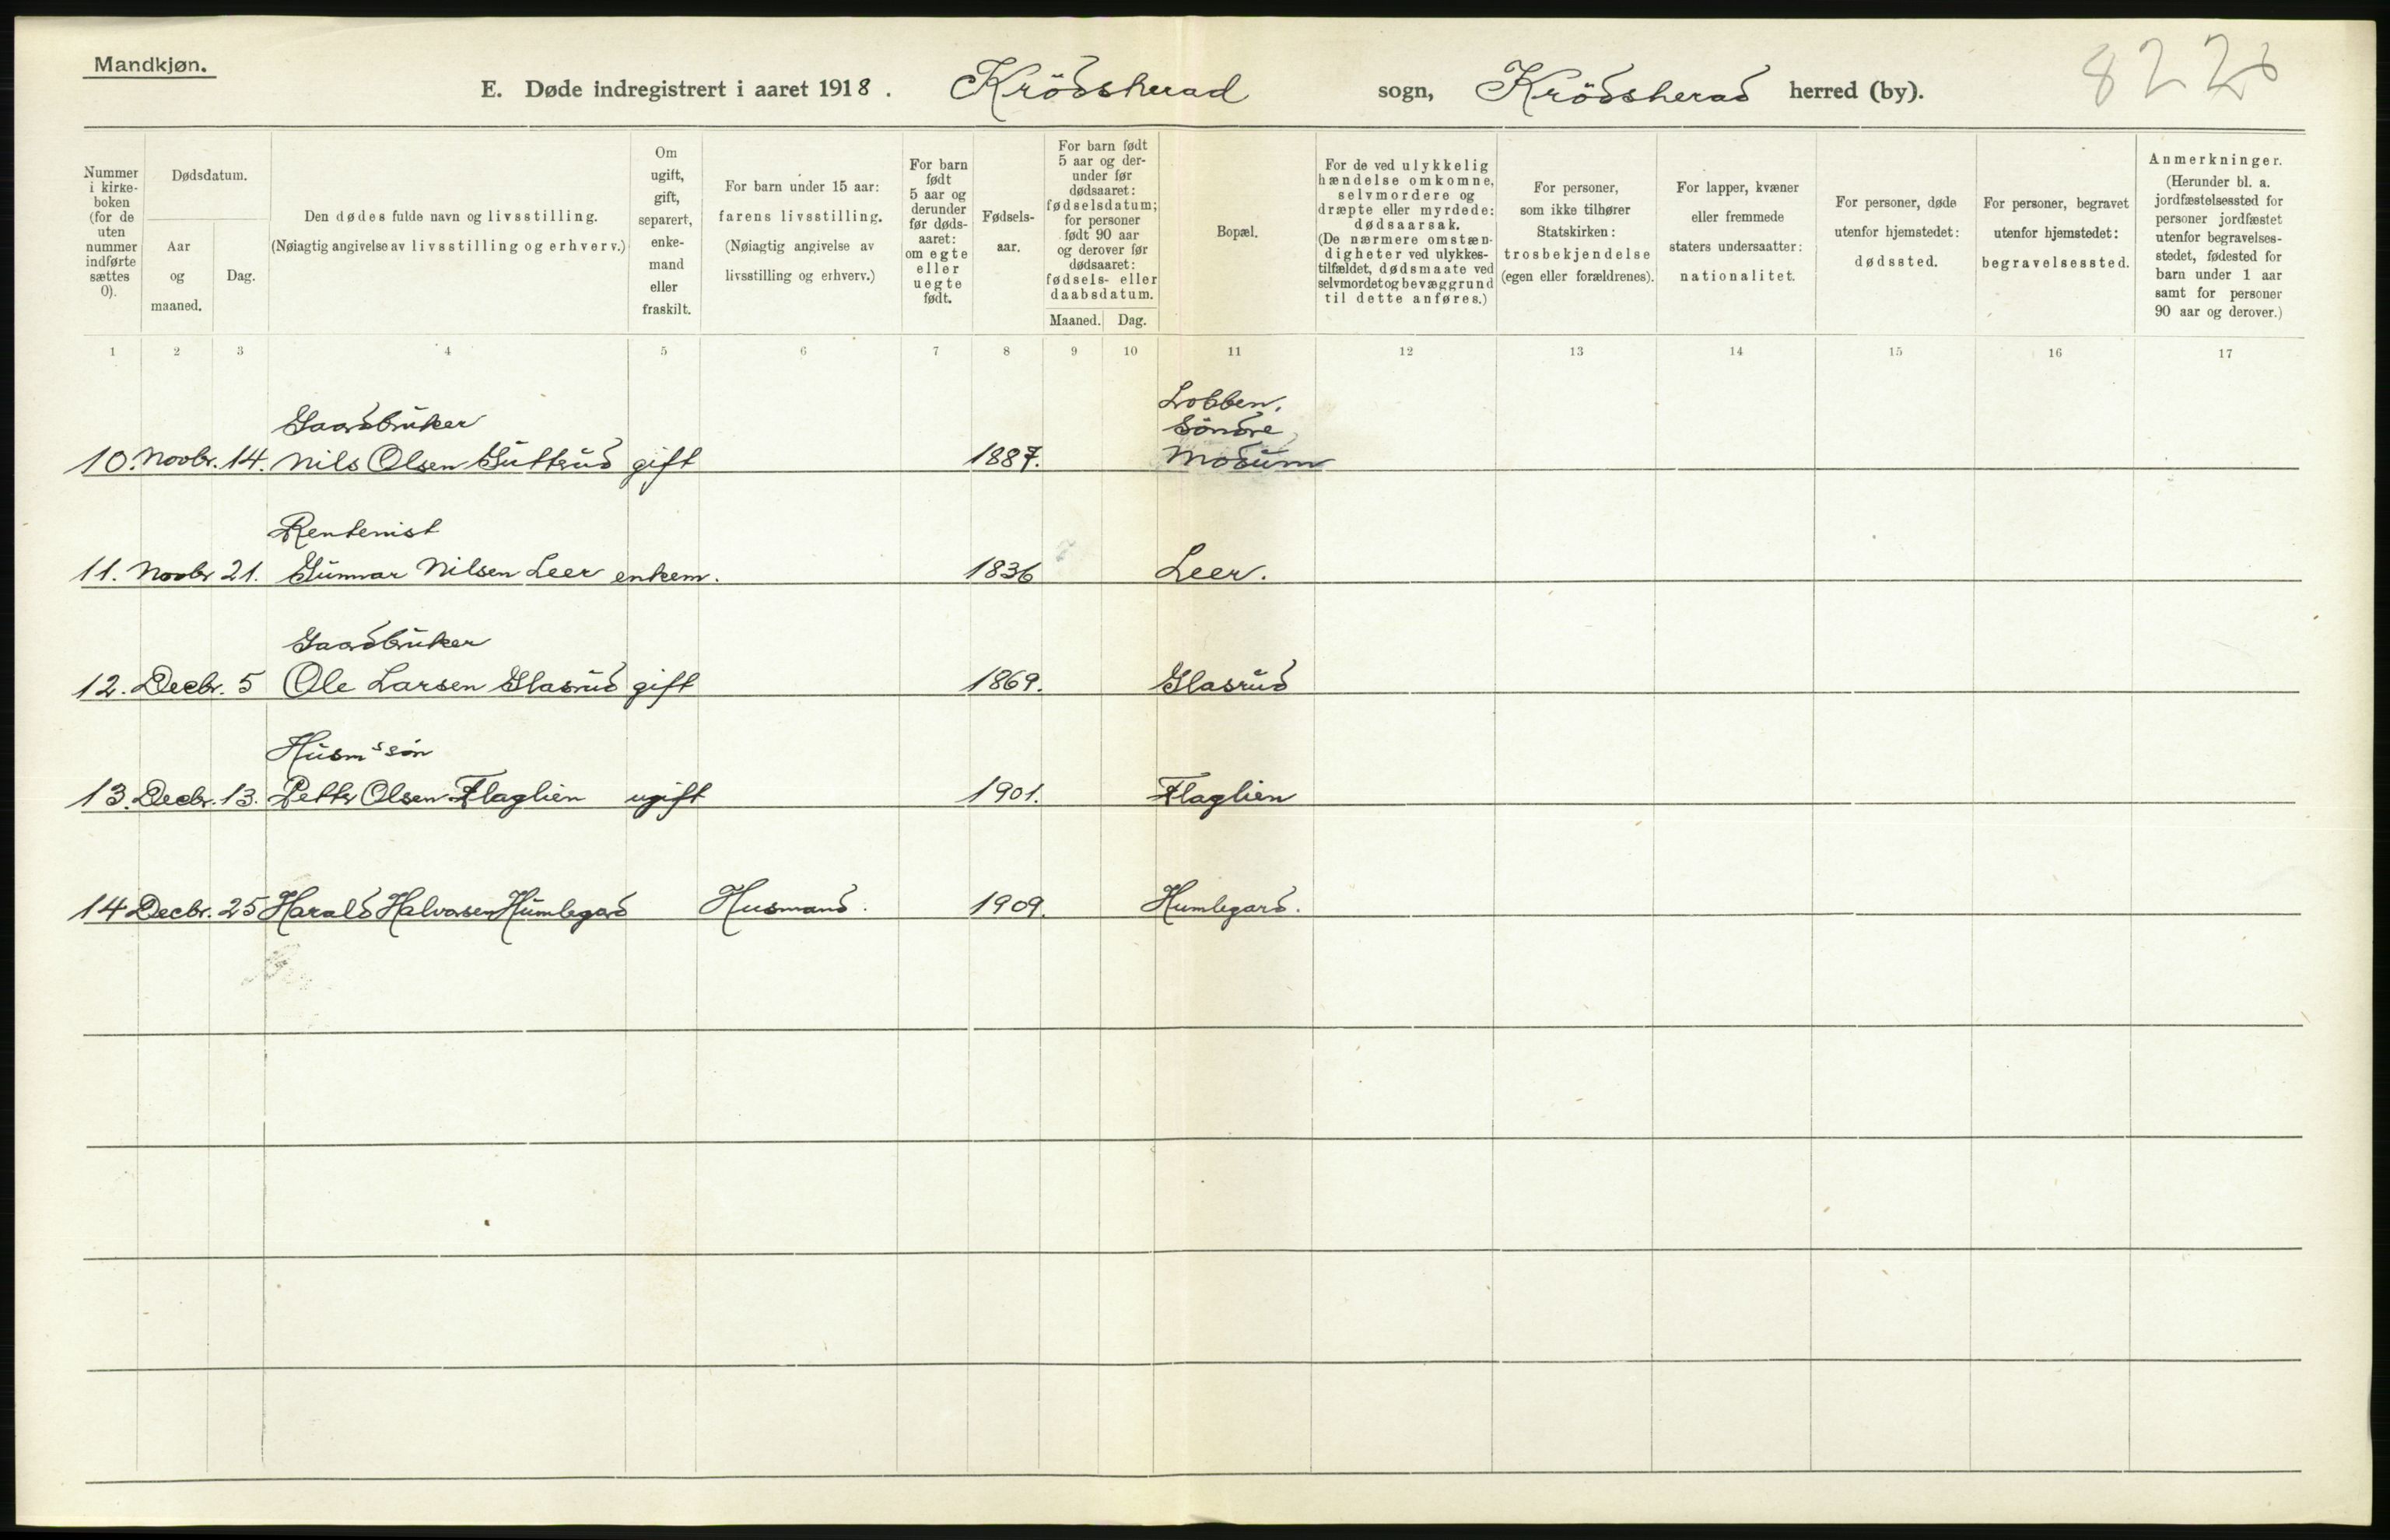 Mandkjøn.
E. Døde indregistrert i aaret 1918. Krödsherad sogn, Krödsherad herred (by).
Nummer i kirke- boken (for de uten nummer indførte sættes 0).
Dødsdatum.
Aar og maaned.
Dag.
Den dødes fulde navn og livsstilling.
(Nøiagtig angivelse av livsstilling og erhverv.)
Om ugift, gift, separert, enke- mand eller fraskilt.
For barn under 15 aar:
farens livsstilling.
(Nøiagtig angivelse av
livsstilling og erhverv.)
For barn født 5 aar og derunder før døds- aaret: om egte eller uegte født.
Fødsels- aar.
For barn født 5 aar og der- under før dødsaaret: fødselsdatum; for personer født 90 aar og derover før dødsaaret: fødsels- eller daabsdatum.
Maaned. Dag.
Bopæl.
For de ved ulykkelig hændelse omkomne, selvmordere og dræpte eller myrdede: dødsaarsak.
(De nærmere omstæn- digheter ved ulykkes- tilfældet, dødsmaate ved selvmordet og bevæggrund til dette anføres.)
For personer, som ikke tilhører Statskirken: trosbekjendelse (egen eller forældrenes).
For lapper, kvæner eller fremmede staters undersaatter: nationalitet.
For personer, døde utenfor hjemstedet: dødssted.
For personer, begravet utenfor hjemstedet: begravelsessted.
Anmerkninger.
(Herunder bl. a. jordfæstelsessted for personer jordfæstet utenfor begravelses- stedet, fødested for barn under 1 aar samt for personer 90 aar og derover.)
1 2 3 4 5 6 7 8 9 10 11 12 13 14 15 16 17
Gaardbruker Lobben,
Söndre
10. Novbr. 14. Nils Olsen Guttrud gift 1887. Modum
Rentenist
11. Novbr 21. Gunnar Nilsen Leer enkem. 1836 Leer.
Gaardbruker
12. Decbr. 5 Ole Larsen Glasrud gift 1869. Glasrud
Husm s søn
13. Decbr. 13. Petter Olsen Flaglien ugift 1901. Flaglien
14 Decbr. 25 Harald Halvorsen Humlegard Husmand. 1909. Humlegard.